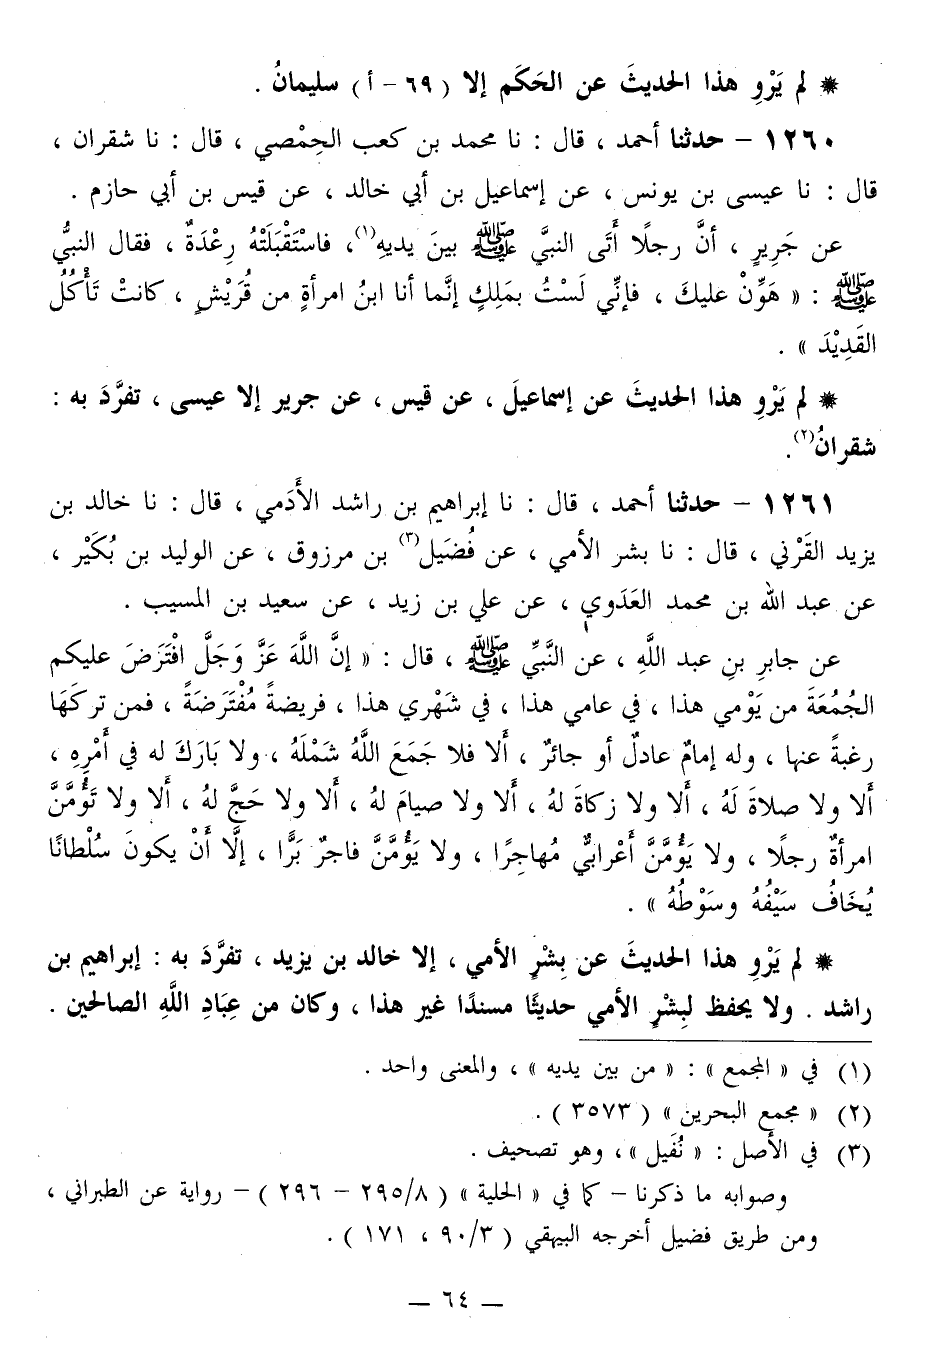 * لم يَرْوِ هذا الحديثَ عن الحَكَم إلا ( ٦٩ - أ ) سليمانُ .
١٢٦٠ - حدثنا أحمد ، قال : نا محمد بن كعب الحِمْصي ، قال : نا شقران ،
قال : نا عيسى بن يونس ، عن إسماعيل بن أبي خالد ، عن قيس بن أبي حازم .
عن جَريرٍ ، أنَّ رجلًا أَتَى النبيَّ ﷺ بينَ يديهِ(١)، فاسْتَقْبَلَتْهُ رِعْدَةٌ ، فقال النبيُّ
ﷺ : « هَوِّنْ عليكَ ، فإنِّي لَسْتُ بمَلِكٍ إنَّما أنا ابنُ امرأةٍ من قُرَيْشٍ ، كانتْ تَأْكُلُ
القَدِيْدَ » .
* لم يَرْوِ هذا الحديثَ عن إسماعيلَ ، عن قيس ، عن جرير إلا عيسى ، تفرَّدَ به :
شقرانُ(٢).
١٢٦١ - حدثنا أحمد ، قال : نا إبراهيم بن راشد الأَدَمي ، قال : نا خالد بن
يزيد القَرْني ، قال : نا بشر الأمي ، عن فُضَيل(٣) بن مرزوق ، عن الوليد بن بُكَيْر ،
عن عبد الله بن محمد العَدَوي ، عن علي بن زيد ، عن سعيد بن المسيب .
عن جابرِ بنِ عبد اللَّهِ ، عن النَّبيِّ ﷺ ، قال : « إنَّ اللَّهَ عَزَّ وَجَلَّ افْتَرَضَ عليكم
الجُمُعَةَ من يَوْمي هذا ، في عامي هذا ، في شَهْري هذا ، فريضةً مُفْتَرَضَةً ، فمن تركَهَا
رغبةً عنها ، وله إمامٌ عادلٌ أو جائرٌ ، أَلا فلا جَمَعَ اللَّهُ شَمْلَهُ ، ولا بَارَكَ له في أَمْرِهِ ،
أَلا ولا صلاةَ لَهُ ، أَلا ولا زكاةَ لهُ ، أَلا ولا صيامَ لهُ ، أَلا ولا حَجَّ لهُ ، أَلا ولا تَؤُمَّنَّ
امرأةٌ رجلًا ، ولا يَؤُمَّنَّ أَعْرابيٌّ مُهاجِرًا ، ولا يَؤُمَّنَّ فاجرٌ بَرًّا ، إلَّا أَنْ يكونَ سُلْطانًا
يُخَافُ سَيْفُهُ وسَوْطُهُ » .
* لم يَرْوِ هذا الحديثَ عن بِشْرٍ الأمي ، إلا خالد بن يزيد ، تفرَّدَ به : إبراهيم بن
راشد . ولا يحفظ لبِشْرٍ الأمي حديثًا مسندًا غير هذا ، وكان من عِبَادِ اللَّهِ الصالحين .
(١) في « المجمع » : « من بين يديه » ، والمعنى واحد .
(٢) « مجمع البحرين » ( ٣٥٧٣ ) .
(٣) في الأصل : « نُفَيل » ، وهو تصحيف .
وصوابه ما ذكرنا - كما في « الحلية » ( ٢٩٥/٨ - ٢٩٦ ) - رواية عن الطبراني ،
ومن طريق فضيل أخرجه البيهقي ( ٩٠/٣ ، ١٧١ ) .
— ٦٤ —